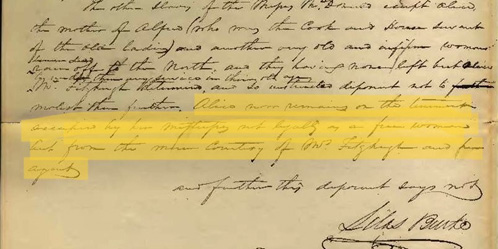 the other slaves of the Misses McDaniel except Alice
the mother of Alfred (who was the Cook and House servant
of the old ladies) and another very old and infirm woman
ran off to the North, and they having none left but
Mr. Fitzhugh and so instructed deponent not to
molest them further. Alice now remains on the tenement
occupied by her Mistresses not legally as a free woman
but from the mere Courtesy of Mr. Fitzhugh and
agent
and further this deponent says not
Silas Burke